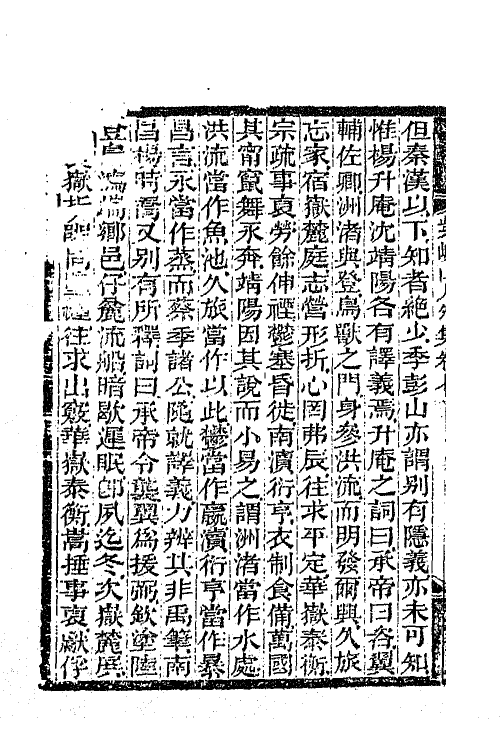 但秦漢以下知者絶少季彭山亦謂别有隱義亦未可知
惟楊升庵沈靖陽各有譯義焉升庵之詞曰承帝曰咨翼
輔佐卿洲渚與登鳥獸之門身參洪流而明發爾興久旅
忘家宿嶽麓庭志營形折心罔弗辰往求平定華嶽泰衡
宗疏事裒勞餘伸禋鬱塞昏徙南瀆衍亨衣制食備萬國
其甯竄舞永奔靖陽因其說而小易之謂洲渚當作水處
洪流當作魚池久旅當作以此鬱當作嬴瀆衍亨當作暴
昌言永當作蒸而蔡季諸公隨就譯義力辨其非禹筆南
昌楊時喬又别有所釋詞曰承帝令襲翼爲援弼欽塗陸
鄉邑仔簏流船暗歇遲眠卽夙迄冬次嶽麓展
嶽 往求出竅華嶽泰衡嵩捶事裒獻仔